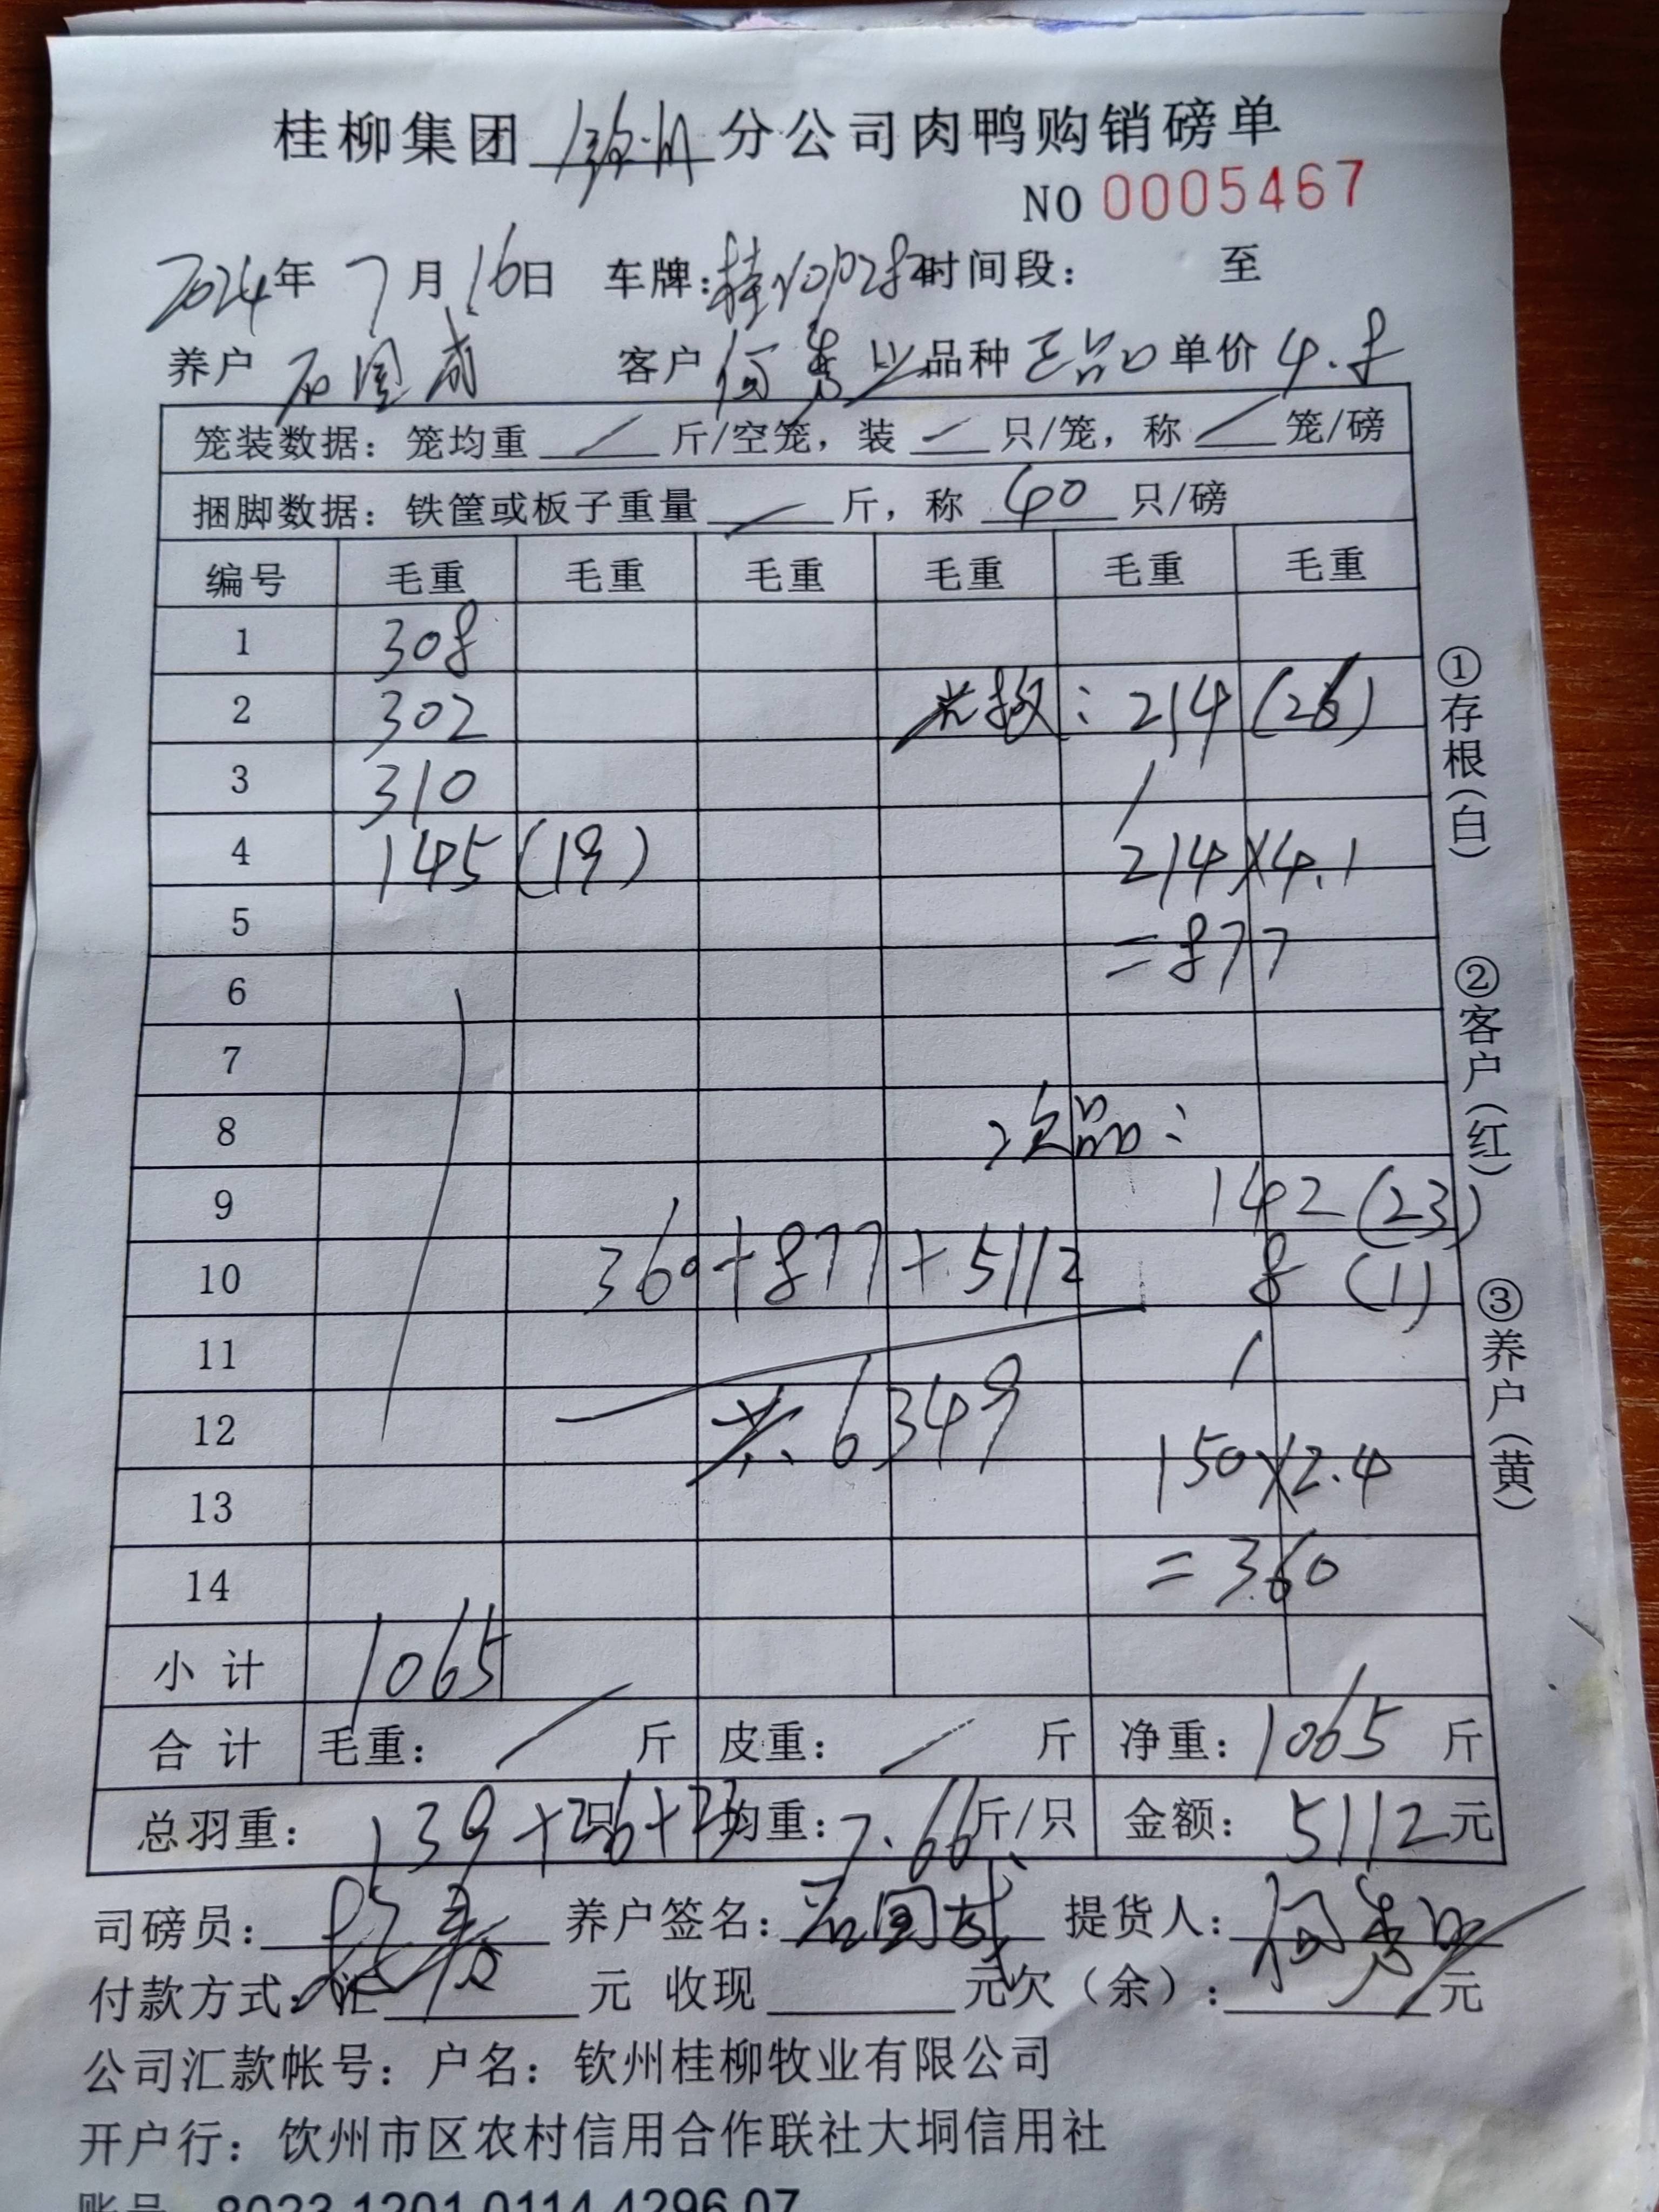 桂柳集团 钦州 分公司肉鸭购销磅单
NO 0005467
2024年 7月 16日 车牌: 时间段: 至
养户 石国成 客户 何秀 品种 正品 单价 4.8
笼装数据: 笼均重 / 斤/空笼, 装 / 只/笼, 称 / 笼/磅
捆脚数据: 铁筐或板子重量 / 斤, 称 40 只/磅
编号 毛重 毛重 毛重 毛重 毛重 毛重
1 308
2 302 : 214 (26)
3 310 /
4 145 (19) 214×4.1
5 =877
6
7
8 次品:
9 142 (23)
10 360+877+5112 8 (1)
11 /
12 共6349 150×2.4
13
14 =360
小计 1065
合计 毛重: / 斤 皮重: / 斤 净重: 1065 斤
总羽重: 139+26+23 只 均重: 7.66 斤/只 金额: 5112元
司磅员: 养户签名: 石国成 提货人: 何秀
付款方式: 汇 元 收现 元欠(余): 元
公司汇款帐号: 户名: 钦州桂柳牧业有限公司
开户行: 钦州市区农村信用合作联社大垌信用社
账号 8023 1201 0114 4296 07
①存根(白)
②客户(红)
③养户(黄)